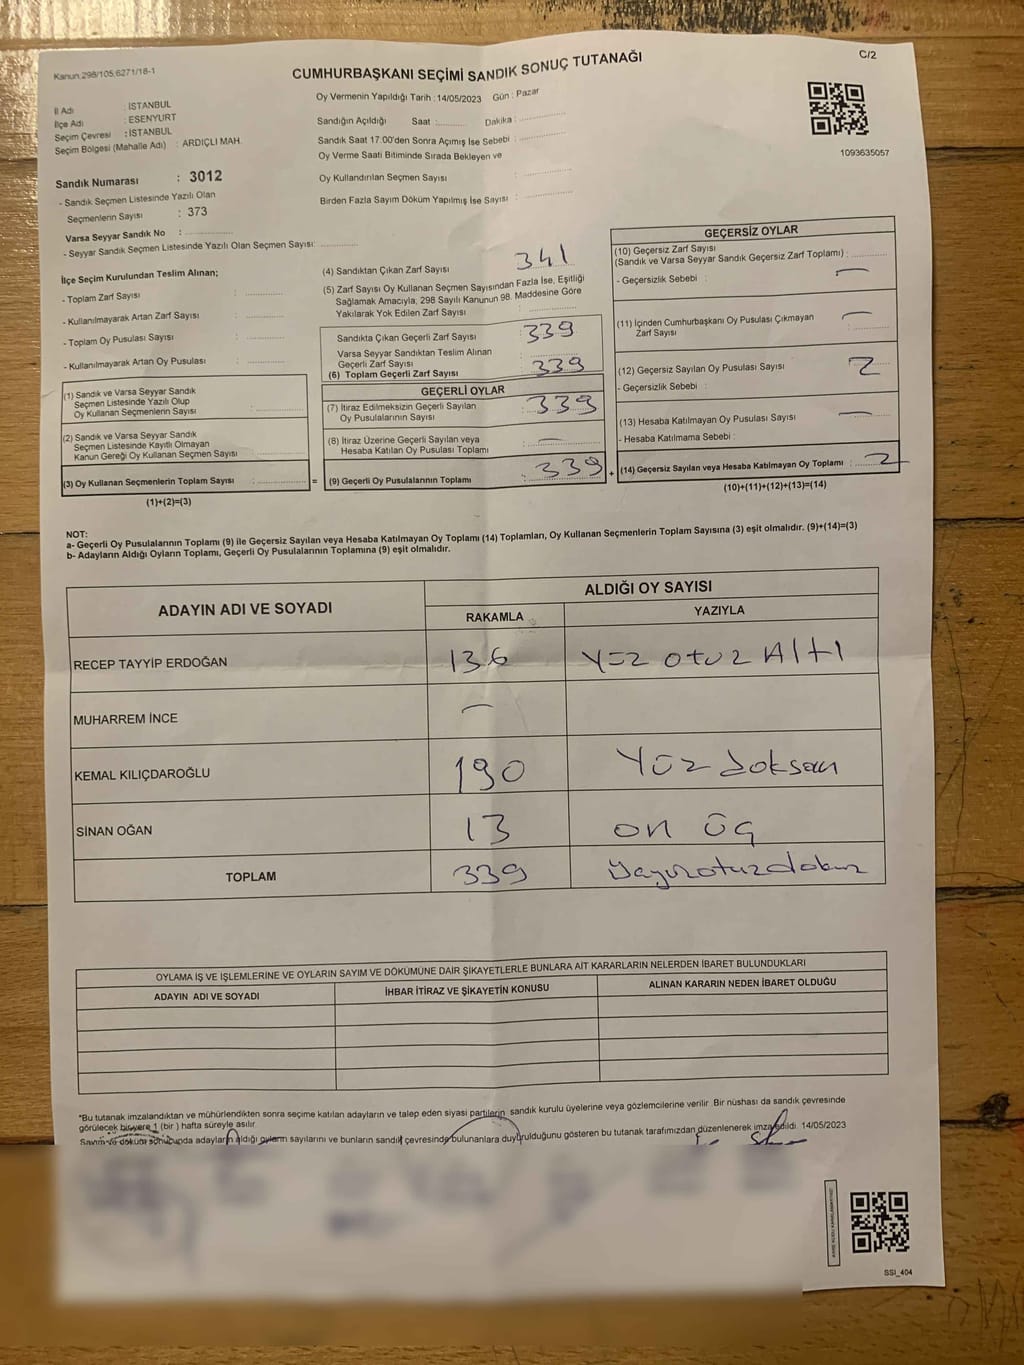 Kanun:298/105;6271/18-1
C/2
CUMHURBAŞKANI SEÇİMİ SANDIK SONUÇ TUTANAĞI
Oy Vermenin Yapıldığı Tarih : 14/05/2023 Gün : Pazar
İl Adı : İSTANBUL
İlçe Adı : ESENYURT
Seçim Çevresi : İSTANBUL
Seçim Bölgesi (Mahalle Adı) : ARDIÇLI MAH.
Sandığın Açıldığı Saat : Dakika :
Sandık Saat 17.00'den Sonra Açımış İse Sebebi :
Oy Verme Saati Bitiminde Sırada Bekleyen ve
Oy Kullandırılan Seçmen Sayısı :
Birden Fazla Sayım Döküm Yapılmış İse Sayısı :
1093635057
Sandık Numarası : 3012
- Sandık Seçmen Listesinde Yazılı Olan
Seçmenlerin Sayısı : 373
Varsa Seyyar Sandık No :
- Seyyar Sandık Seçmen Listesinde Yazılı Olan Seçmen Sayısı:
İlçe Seçim Kurulundan Teslim Alınan;
- Toplam Zarf Sayısı :
- Kullanılmayarak Artan Zarf Sayısı :
- Toplam Oy Pusulası Sayısı :
- Kullanılmayarak Artan Oy Pusulası :
(1) Sandık ve Varsa Seyyar Sandık
Seçmen Listesinde Yazılı Olup
Oy Kullanan Seçmenlerin Sayısı :
(2) Sandık ve Varsa Seyyar Sandık
Seçmen Listesinde Kayıtlı Olmayan
Kanun Gereği Oy Kullanan Seçmen Sayısı :
(3) Oy Kullanan Seçmenlerin Toplam Sayısı : =
(1)+(2)=(3)
(4) Sandıktan Çıkan Zarf Sayısı 341
(5) Zarf Sayısı Oy Kullanan Seçmen Sayısından Fazla İse, Eşitliği
Sağlamak Amacıyla, 298 Sayılı Kanunun 98. Maddesine Göre
Yakılarak Yok Edilen Zarf Sayısı :
Sandıkta Çıkan Geçerli Zarf Sayısı : 339
Varsa Seyyar Sandıktan Teslim Alınan
Geçerli Zarf Sayısı :
(6) Toplam Geçerli Zarf Sayısı : 339
GEÇERLİ OYLAR
(7) İtiraz Edilmeksizin Geçerli Sayılan
Oy Pusulalarının Sayısı : 339
(8) İtiraz Üzerine Geçerli Sayılan veya
Hesaba Katılan Oy Pusulası Toplamı : —
(9) Geçerli Oy Pusulalarının Toplamı : 339 +
GEÇERSİZ OYLAR
(10) Geçersiz Zarf Sayısı
(Sandık ve Varsa Seyyar Sandık Geçersiz Zarf Toplamı) : —
- Geçersizlik Sebebi :
(11) İçinden Cumhurbaşkanı Oy Pusulası Çıkmayan —
Zarf Sayısı
(12) Geçersiz Sayılan Oy Pusulası Sayısı 2
- Geçersizlik Sebebi :
(13) Hesaba Katılmayan Oy Pusulası Sayısı —
- Hesaba Katılmama Sebebi :
(14) Geçersiz Sayılan veya Hesaba Katılmayan Oy Toplamı : 2
(10)+(11)+(12)+(13)=(14)
NOT:
a- Geçerli Oy Pusulalarının Toplamı (9) ile Geçersiz Sayılan veya Hesaba Katılmayan Oy Toplamı (14) Toplamları, Oy Kullanan Seçmenlerin Toplam Sayısına (3) eşit olmalıdır. (9)+(14)=(3)
b- Adayların Aldığı Oyların Toplamı, Geçerli Oy Pusulalarının Toplamına (9) eşit olmalıdır.
ADAYIN ADI VE SOYADI
ALDIĞI OY SAYISI
RAKAMLA YAZIYLA
RECEP TAYYİP ERDOĞAN 136 Yüz otuz Altı
MUHARREM İNCE —
KEMAL KILIÇDAROĞLU 190 Yüz doksan
SİNAN OĞAN 13 on üç
TOPLAM 339
OYLAMA İŞ VE İŞLEMLERİNE VE OYLARIN SAYIM VE DÖKÜMÜNE DAİR ŞİKAYETLERLE BUNLARA AİT KARARLARIN NELERDEN İBARET BULUNDUKLARI
ADAYIN ADI VE SOYADI İHBAR İTİRAZ VE ŞİKAYETİN KONUSU ALINAN KARARIN NEDEN İBARET OLDUĞU
*Bu tutanak imzalandıktan ve mühürlendikten sonra seçime katılan adayların ve talep eden siyasi partilerin sandık kurulu üyelerine veya gözlemcilerine verilir. Bir nüshası da sandık çevresinde
görülecek bir yere 1 (bir ) hafta süreyle asılır.
Sayım ve döküm sonucunda adayların aldığı oyların sayılarını ve bunların sandık çevresinde bulunanlara duyurulduğunu gösteren bu tutanak tarafımızdan düzenlenerek imza edildi. 14/05/2023
SSI_404